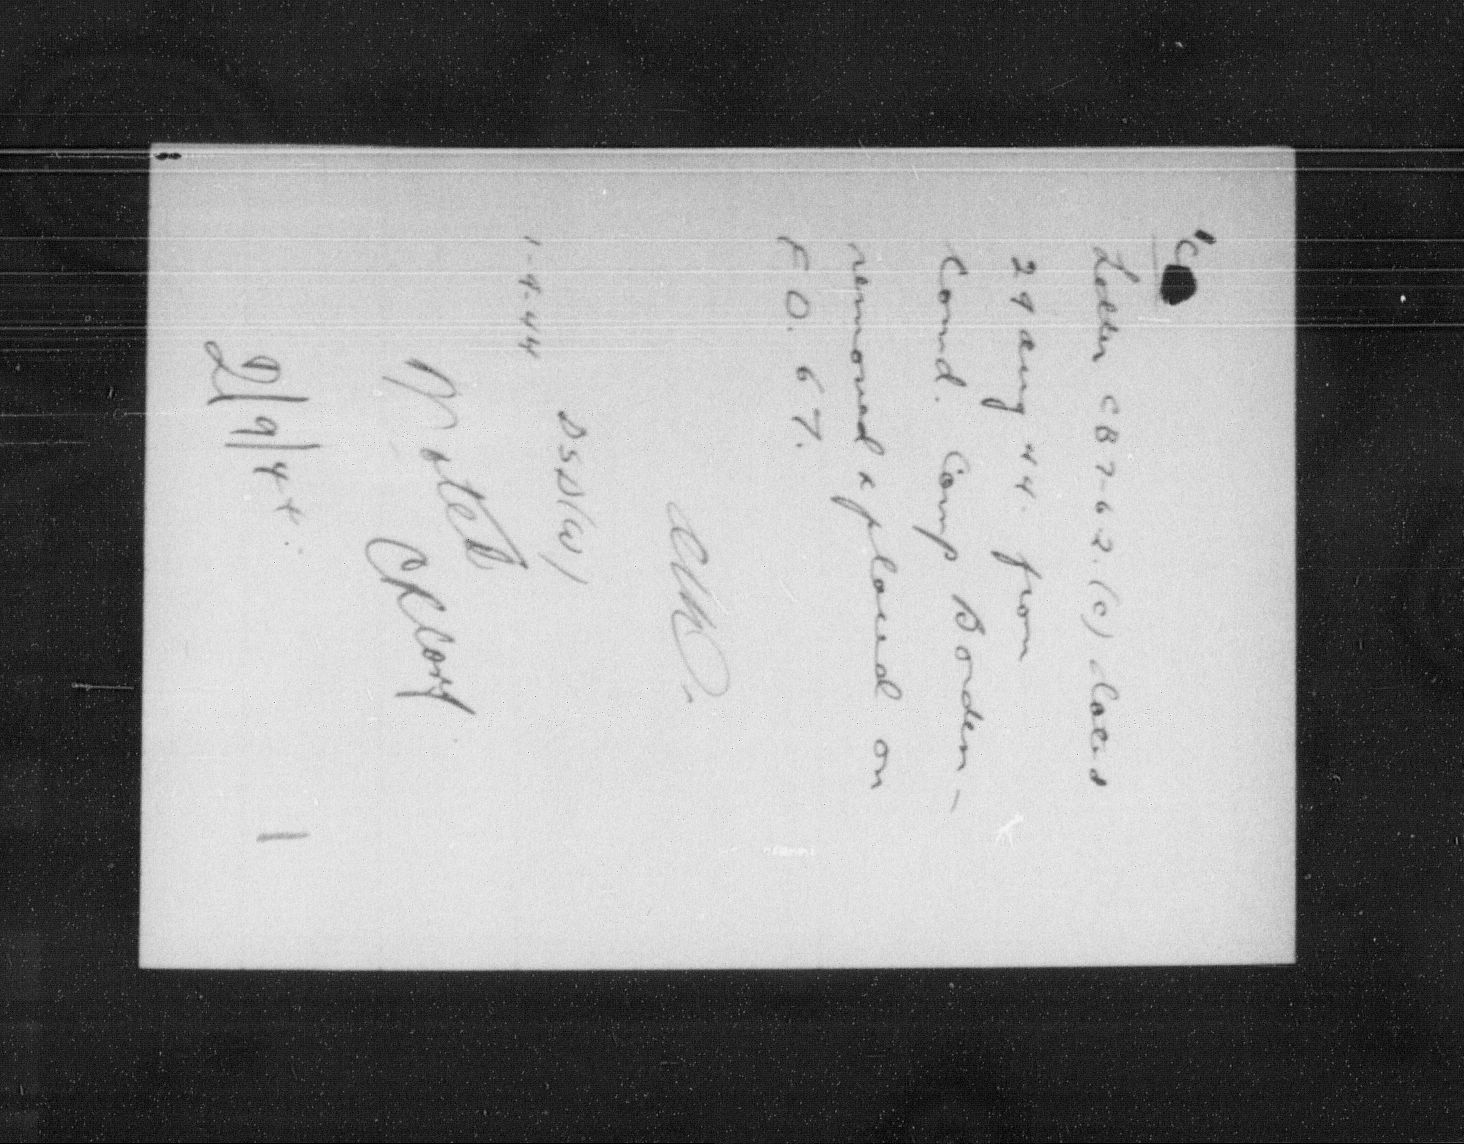 "C
Letter CB7-6-2.(c) dated
29 Aug 44. from
Comd. Camp Borden -
removed & placed on
F.D. 67.
DSD(W)
1-9-44
Noted
2/9/44.